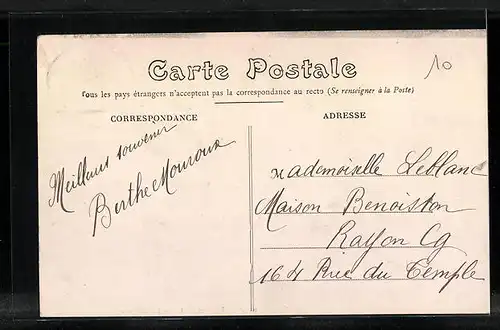 Carte Postale
10
Tous les pays étrangers n'acceptent pas la correspondance au recto (Se renseigner à la Poste)
CORRESPONDANCE
ADRESSE
Meilleurs souvenirs
Berthe Mouroux
Mademoiselle Leblanc
Maison Benoiston
Rayon Cg
164 Rue du Temple